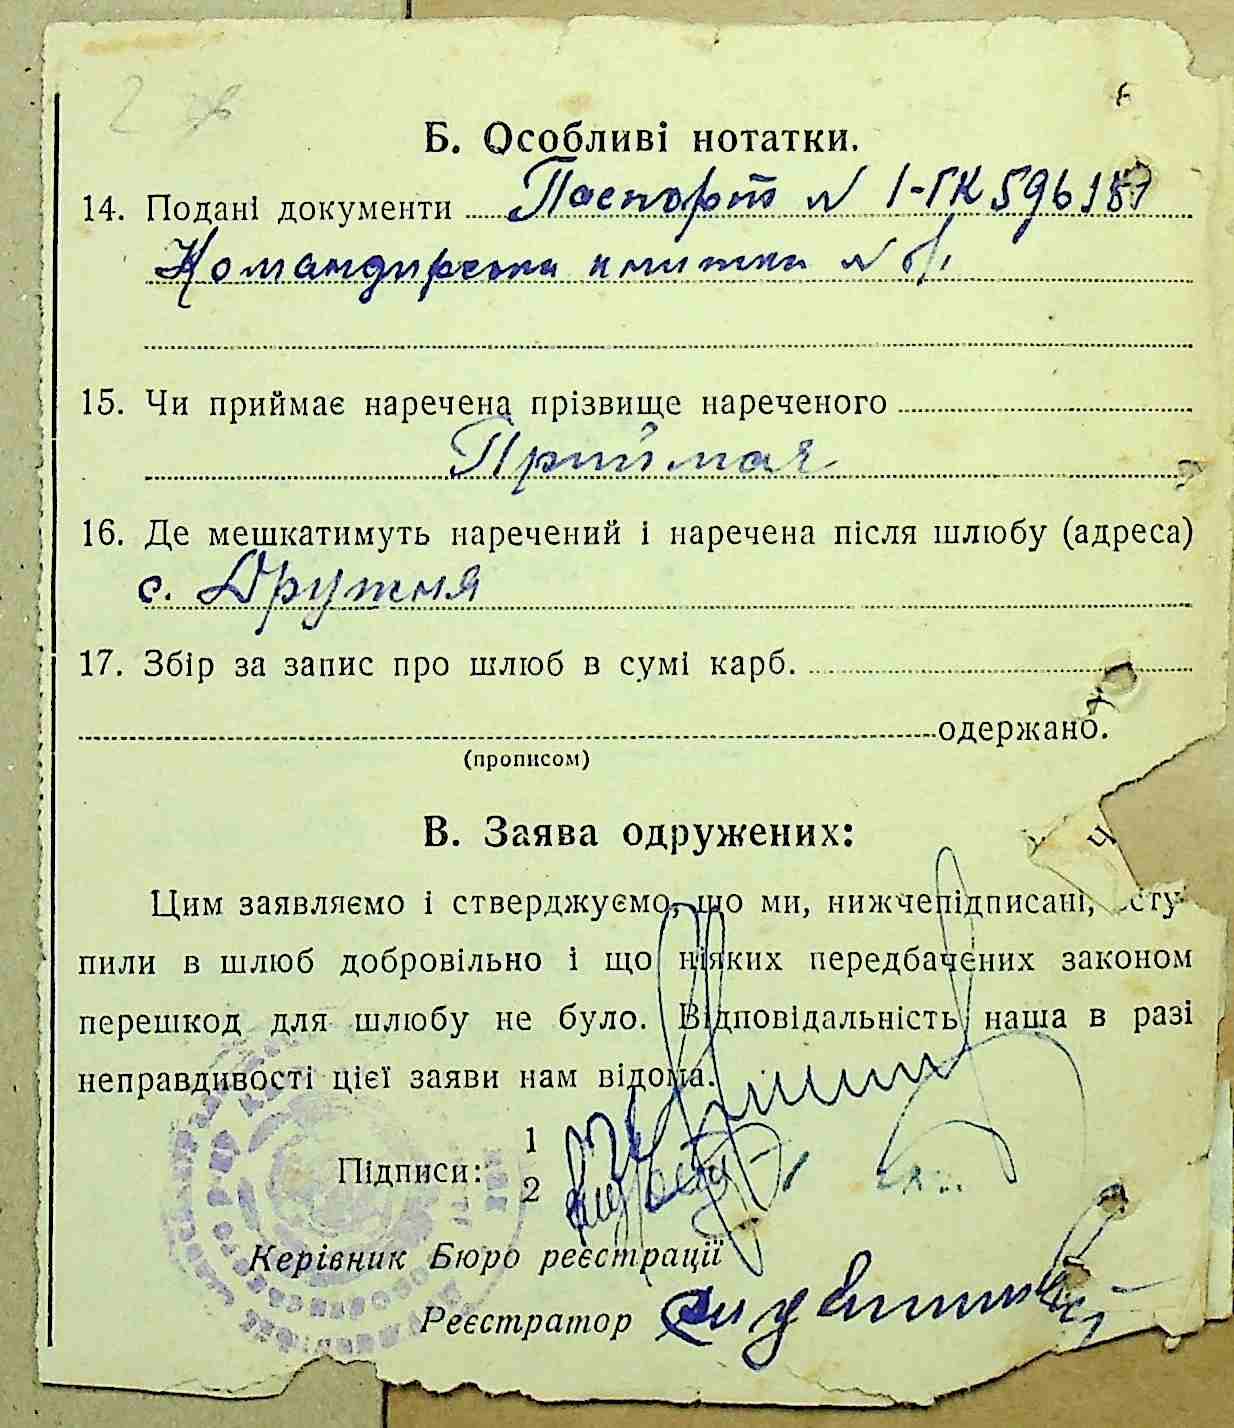 Б. Особливі нотатки.
14. Подані документи Паспорт N 1-ГК 596187
Командирська книжка N б/н
15. Чи приймає наречена прізвище нареченого
Приймая
16. Де мешкатимуть наречений і наречена після шлюбу (адреса)
с. Дружня
17. Збір за запис про шлюб в сумі карб.
одержано.
(прописом)
В. Заява одружених:
Цим заявляємо і стверджуємо, що ми, нижчепідписані, всту-
пили в шлюб добровільно і що ніяких передбачених законом
перешкод для шлюбу не було. Відповідальність наша в разі
неправдивості цієї заяви нам відома.
1
Підписи:
2
Керівник Бюро реєстрації
Реєстратор